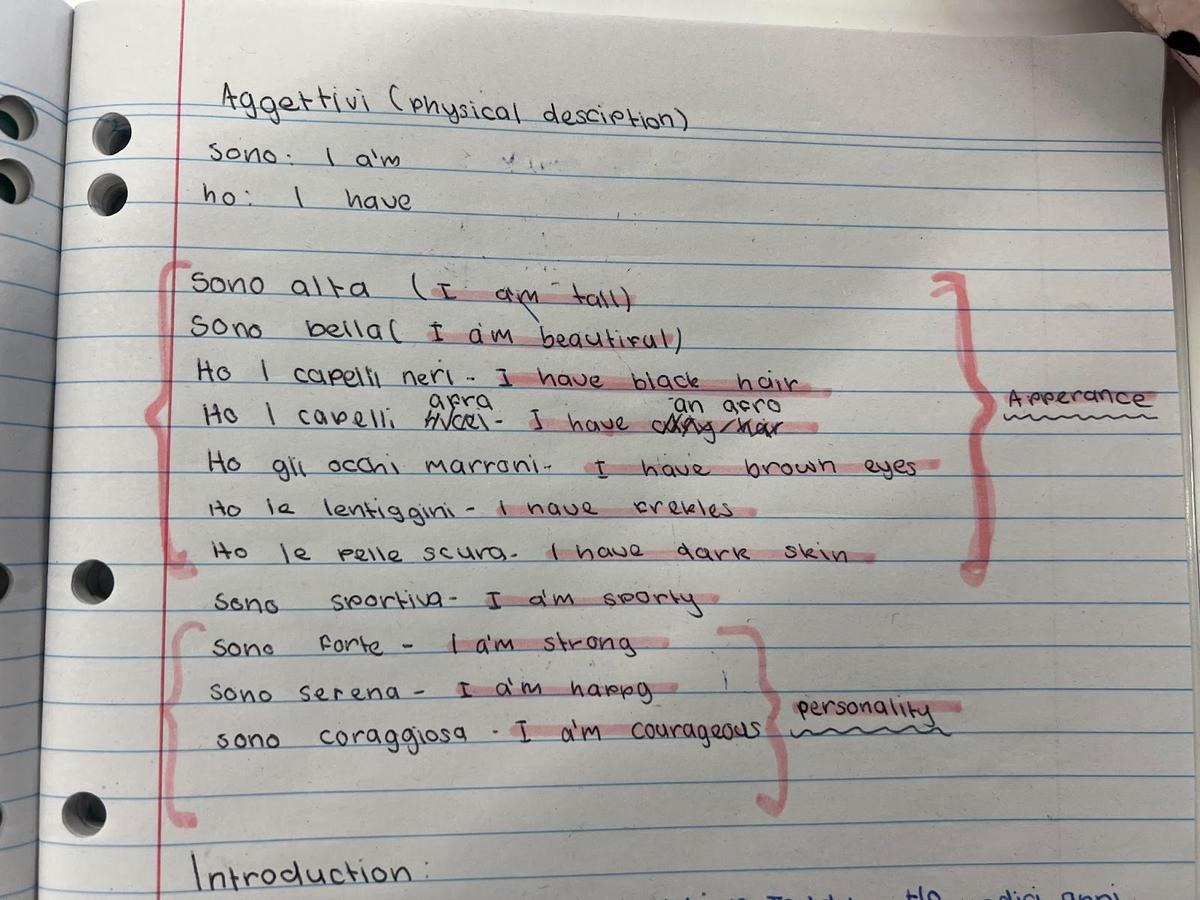 Aggettivi (physical desciption)
sono: I a'm
ho: I have
Sono alta (I am tall)
Sono bella( I a'm beautiful)
Ho I capelli neri - I have black hair
afra an afro
Ho I capelli - I have
Ho gli occhi marroni - I have brown eyes
Ho le lentiggini - I have frekles
Ho le pelle scura - I have dark skin
Apperance
sono sportiva - I a'm sporty
sono forte - I a'm strong
sono serena - I a'm happy
sono coraggiosa - I a'm courageous
personality
Introduction:
Ho anni